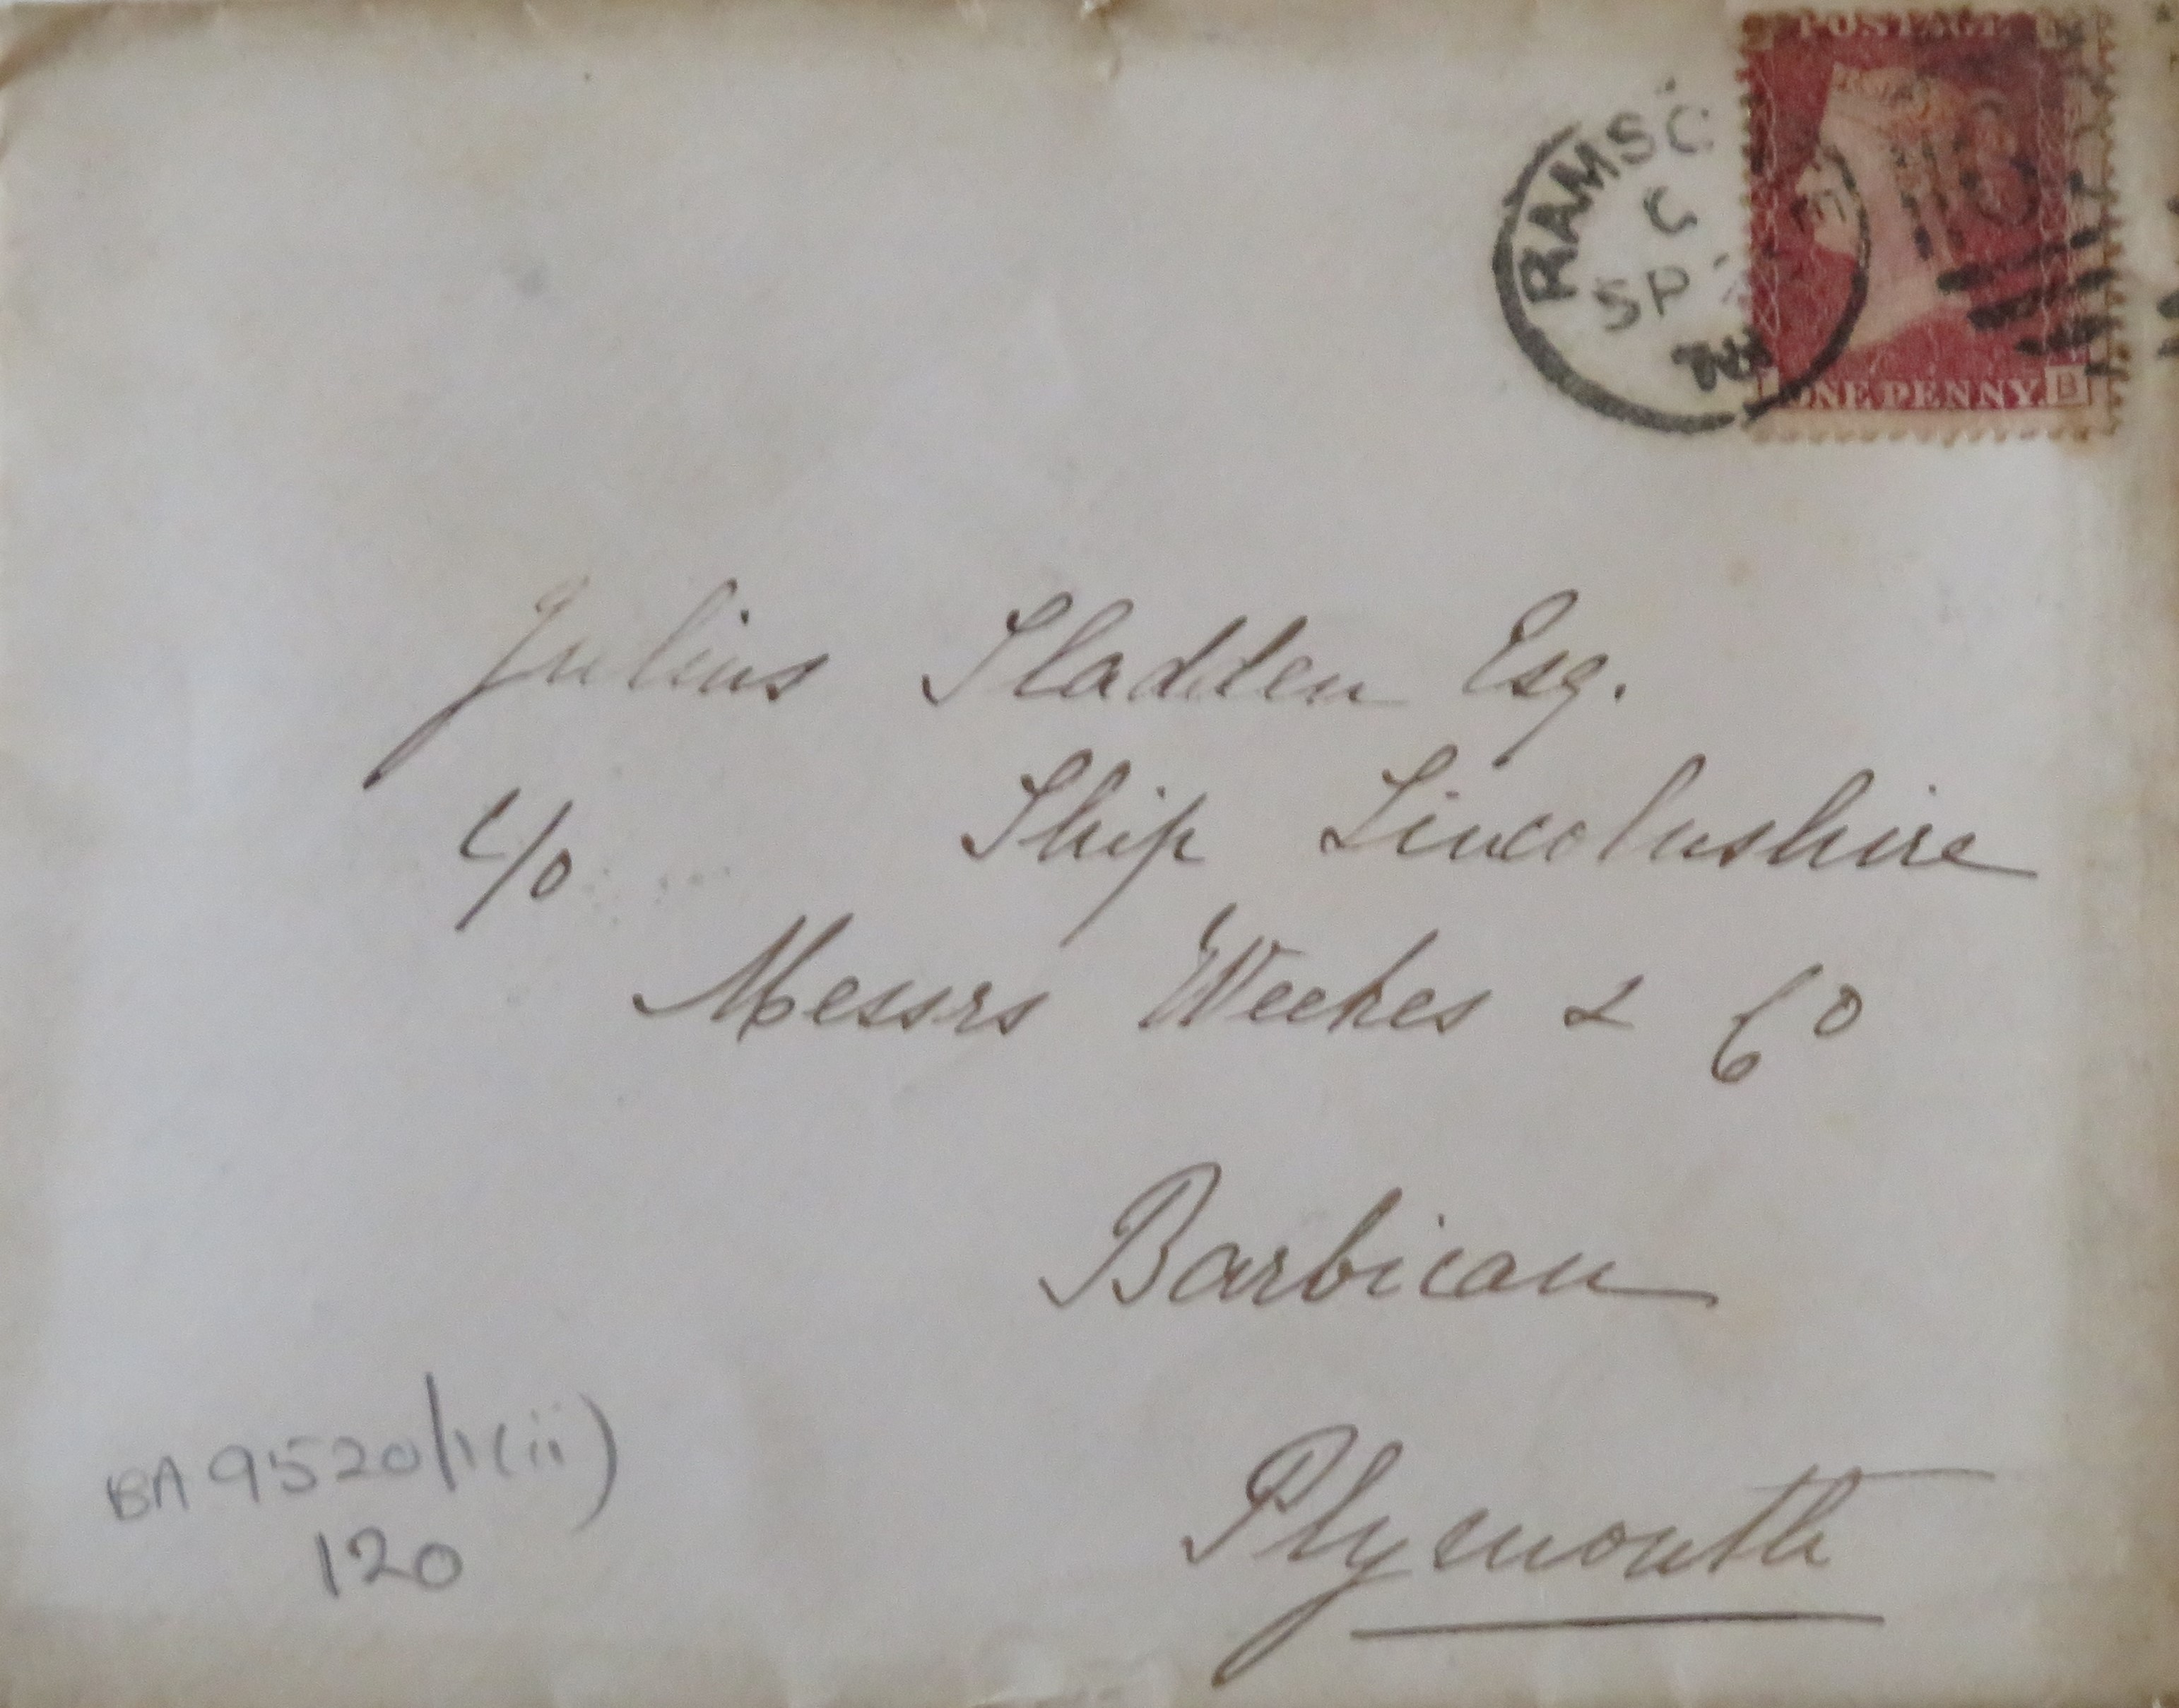 POSTAGE
RAMSG E
C
SP
ONE PENNY. B
Julius Sladden Esq.
Ship Lincolnshire
c/o
Messrs Weekes & Co
Barbican
Plymouth
BA 9520/1(ii)
120